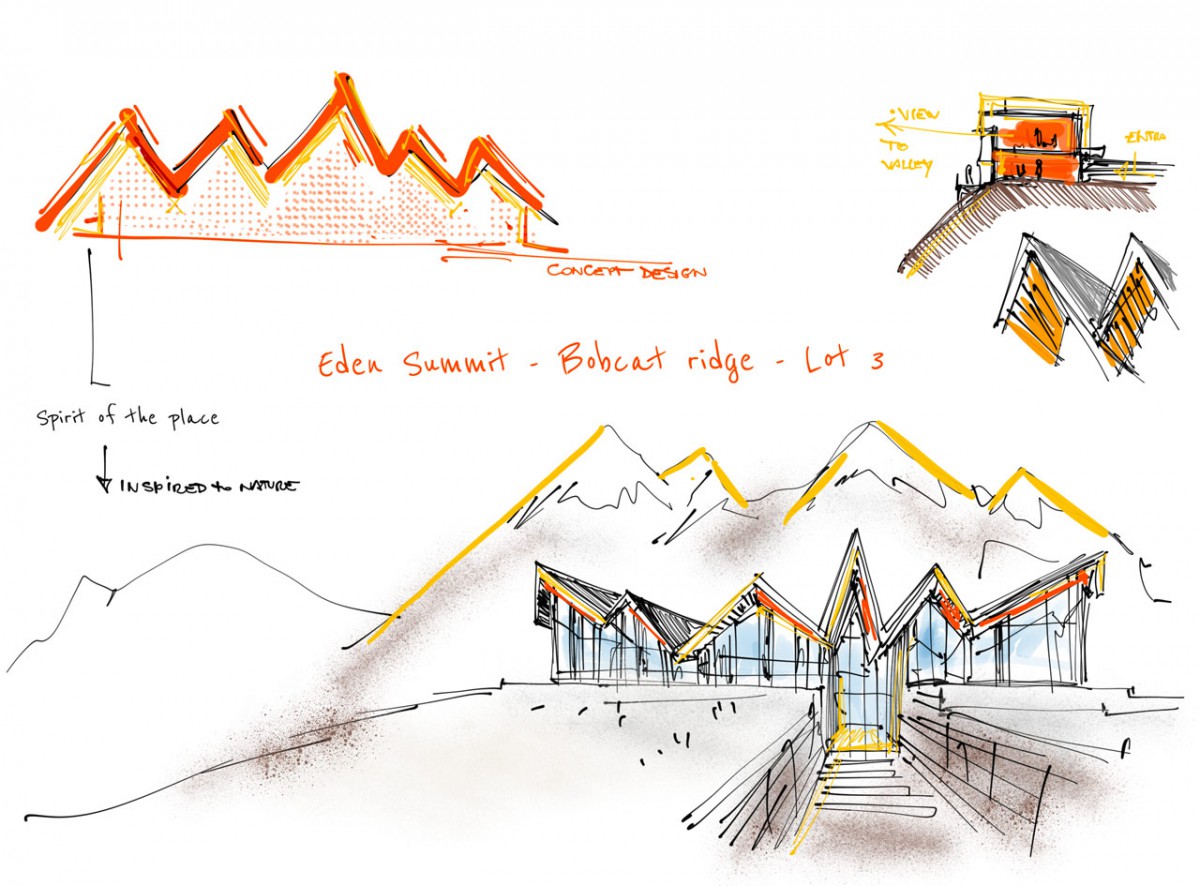 VIEW
TO
VALLEY
ENTRA
CONCEPT DESIGN
Eden Summit - Bobcat ridge - Lot 3
Spirit of the place
INSPIRED to NATURE